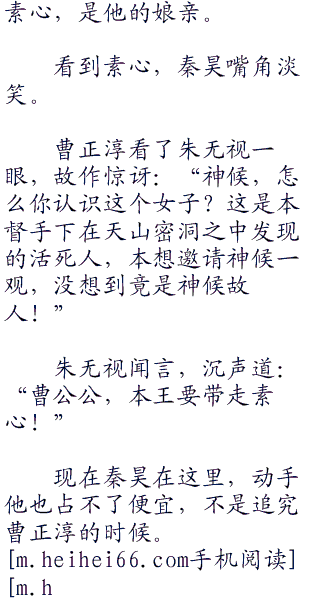 素心，是他的娘亲。
看到素心，秦昊嘴角淡
笑。
曹正淳看了朱无视一
眼，故作惊讶：“神候，怎
么你认识这个女子？这是本
督手下在天山密洞之中发现
的活死人，本想邀请神候一
观，没想到竟是神候故
人！”
朱无视闻言，沉声道：
“曹公公，本王要带走素
心！”
现在秦昊在这里，动手
他也占不了便宜，不是追究
曹正淳的时候。
[m.heihei66.com手机阅读]
[m.h